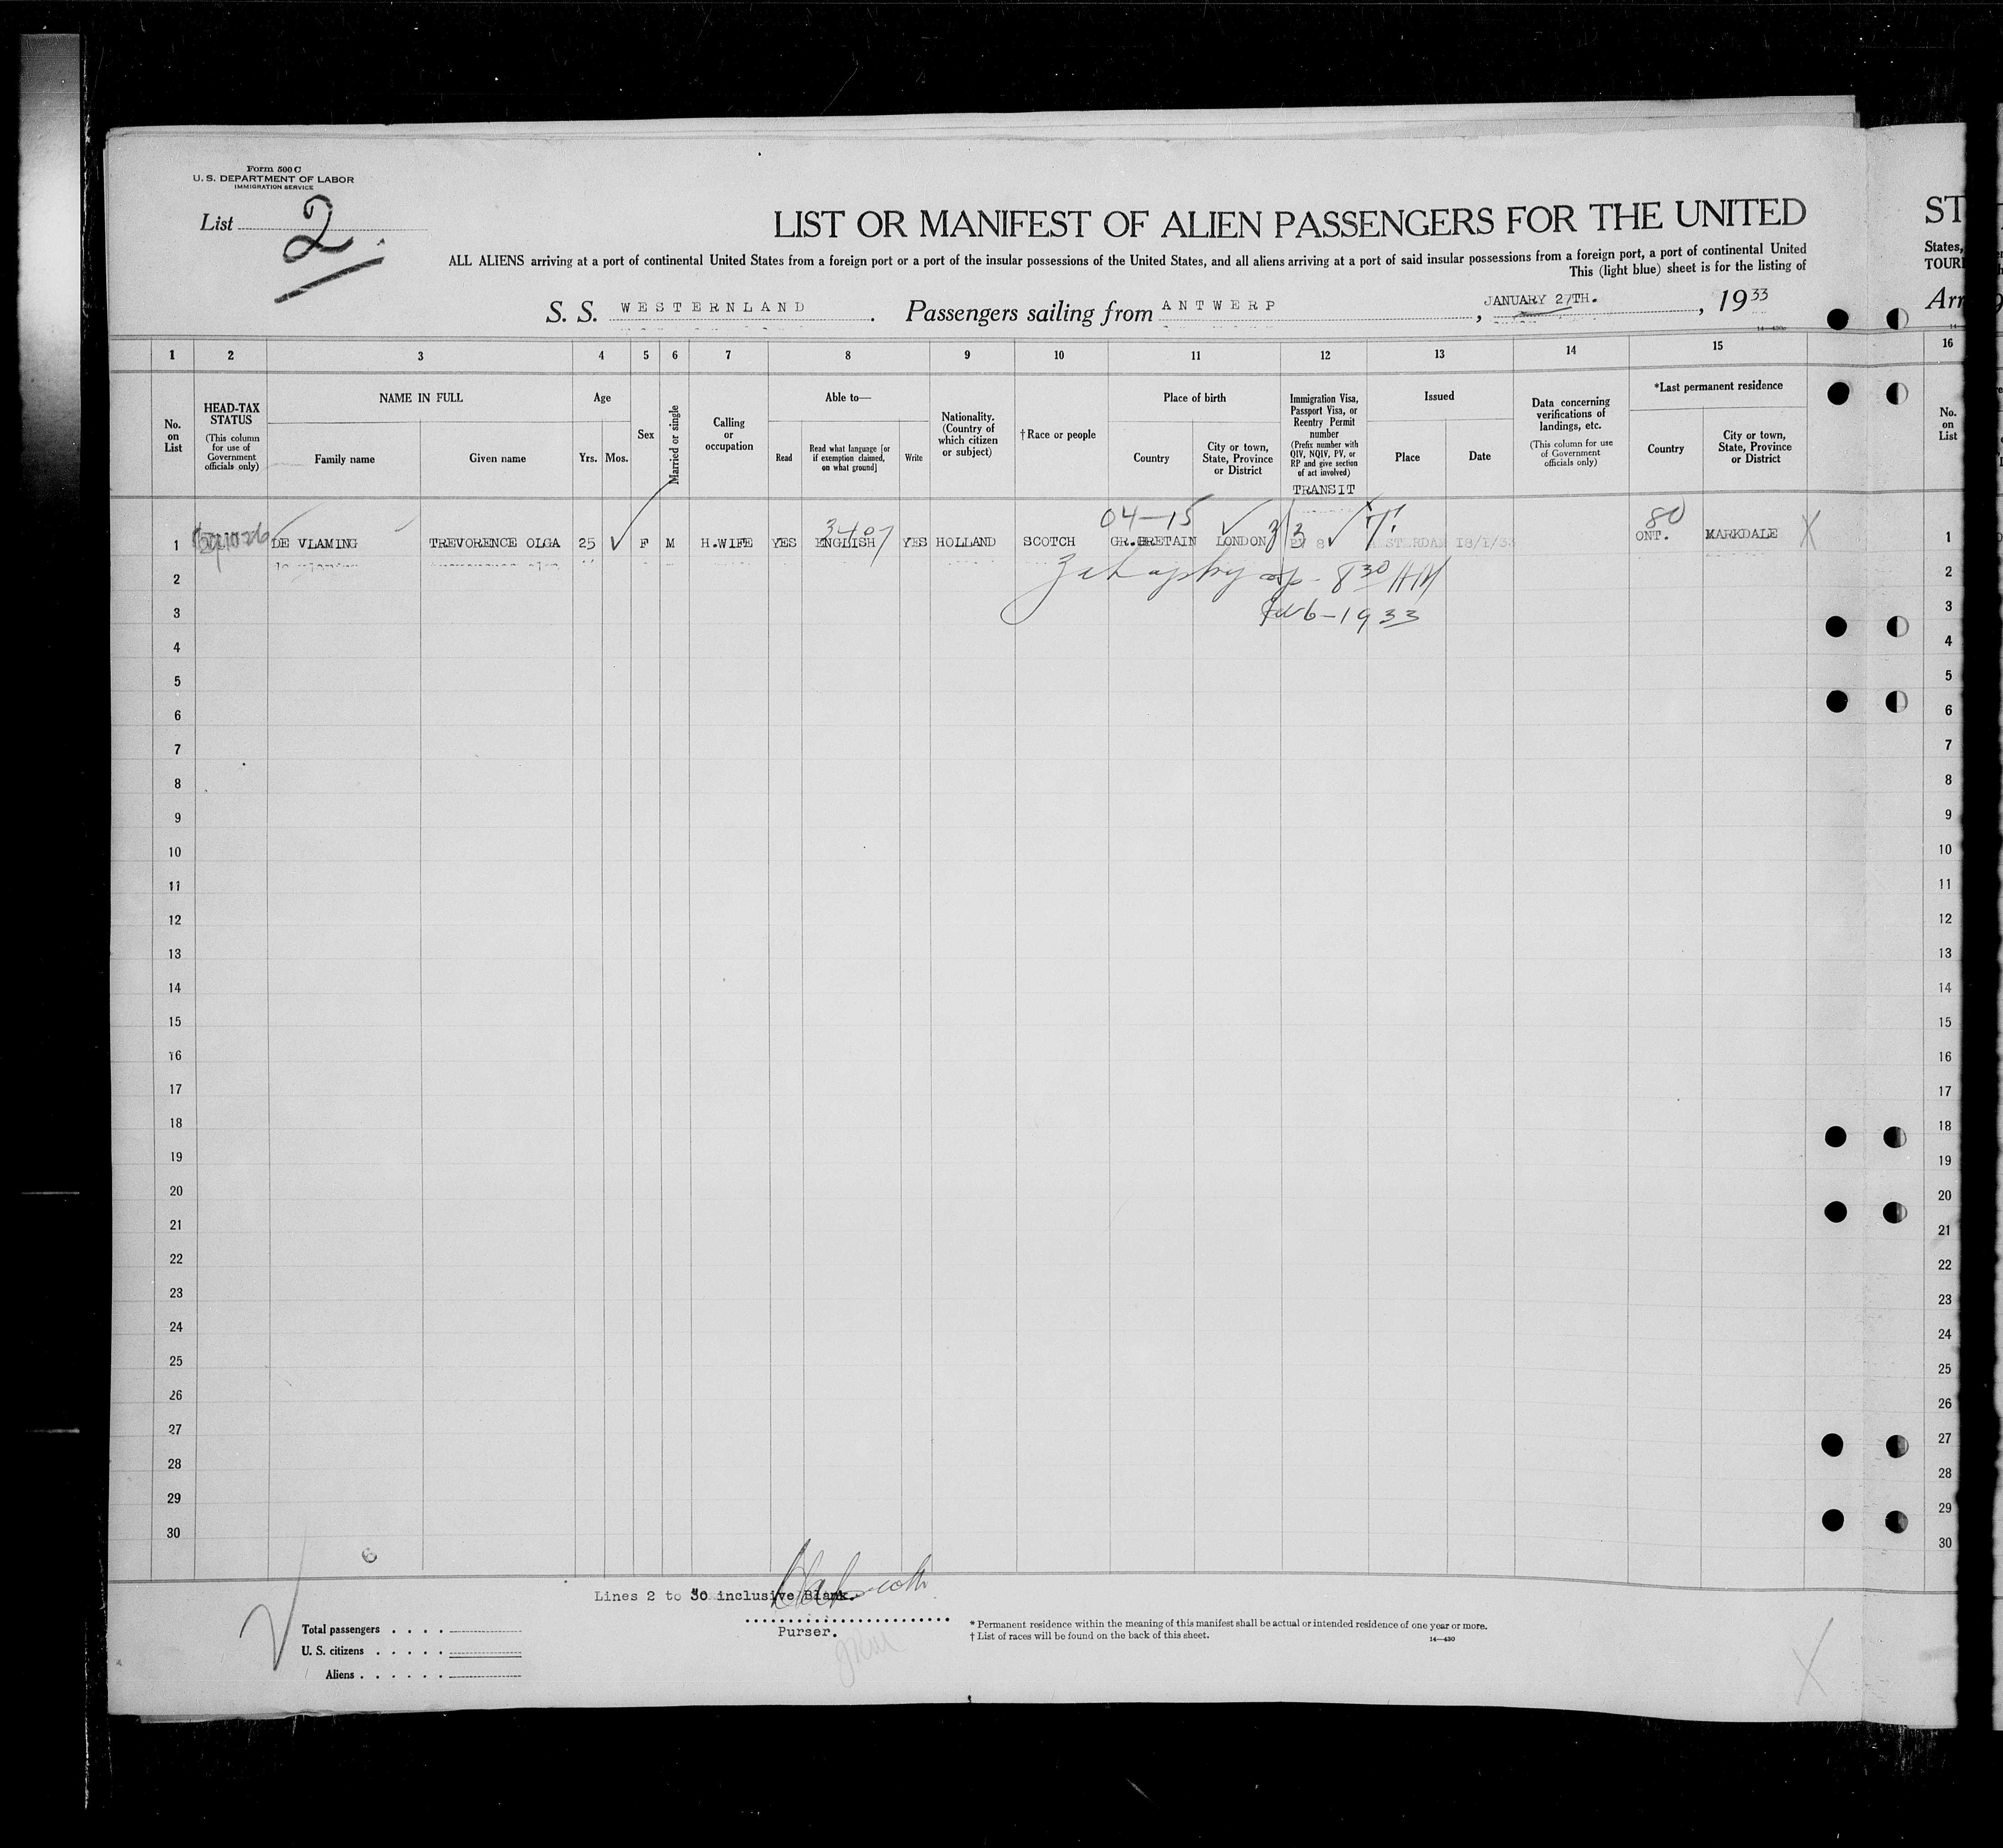 Form 500 C
U. S. DEPARTMENT OF LABOR
IMMIGRATION SERVICE
List 2.
LIST OR MANIFEST OF ALIEN PASSENGERS FOR THE UNITED
ST
ALL ALIENS arriving at a port of continental United States from a foreign port or a port of the insular possessions of the United States, and all aliens arriving at a port of said insular possessions from a foreign port, a port of continental United
States,
This (light blue) sheet is for the listing of
TOUR
S. S. WESTERNLAND. Passengers sailing from ANTWERP, JANUARY 27TH., 1933
Arr
14—430
1 2 3 4 5 6 7 8 9 10 11 12 13 14 15 16
No. on List
HEAD-TAX STATUS (This column for use of Government officials only)
NAME IN FULL
Family name
Given name
Age
Yrs. Mos.
Sex
Married or single
Calling or occupation
Able to—
Read
Read what language [or if exemption claimed, on what ground]
Write
Nationality. (Country of which citizen or subject)
†Race or people
Place of birth
Country
City or town, State, Province or District
Immigration Visa, Passport Visa, or Reentry Permit number (Prefix number with QIV, NQIV, PV, or RP and give section of act involved)
TRANSIT
Issued
Place
Date
Data concerning verifications of landings, etc. (This column for use of Government officials only)
*Last permanent residence
Country
City or town, State, Province or District
No. on List
04-15 80
1 DE VLAMING TREVORENCE OLGA 25 F M H.WIFE YES ENGLISH YES HOLLAND SCOTCH GR.BRETAIN LONDON PV 8 AMSTERDAM 18/1/33 ONT. MARKDALE X 1
2 8 30 AM 2
3 6-1933 3
4 4
5 5
6 6
7 7
8 8
9 9
10 10
11 11
12 12
13 13
14 14
15 15
16 16
17 17
18 18
19 19
20 20
21 21
22 22
23 23
24 24
25 25
26 26
27 27
28 28
29 29
30 30
Lines 2 to 30 inclusive Blank.
Purser.
Total passengers . . . .
U. S. citizens . . . . .
Aliens . . . . . .
* Permanent residence within the meaning of this manifest shall be actual or intended residence of one year or more.
† List of races will be found on the back of this sheet.
14—430
X